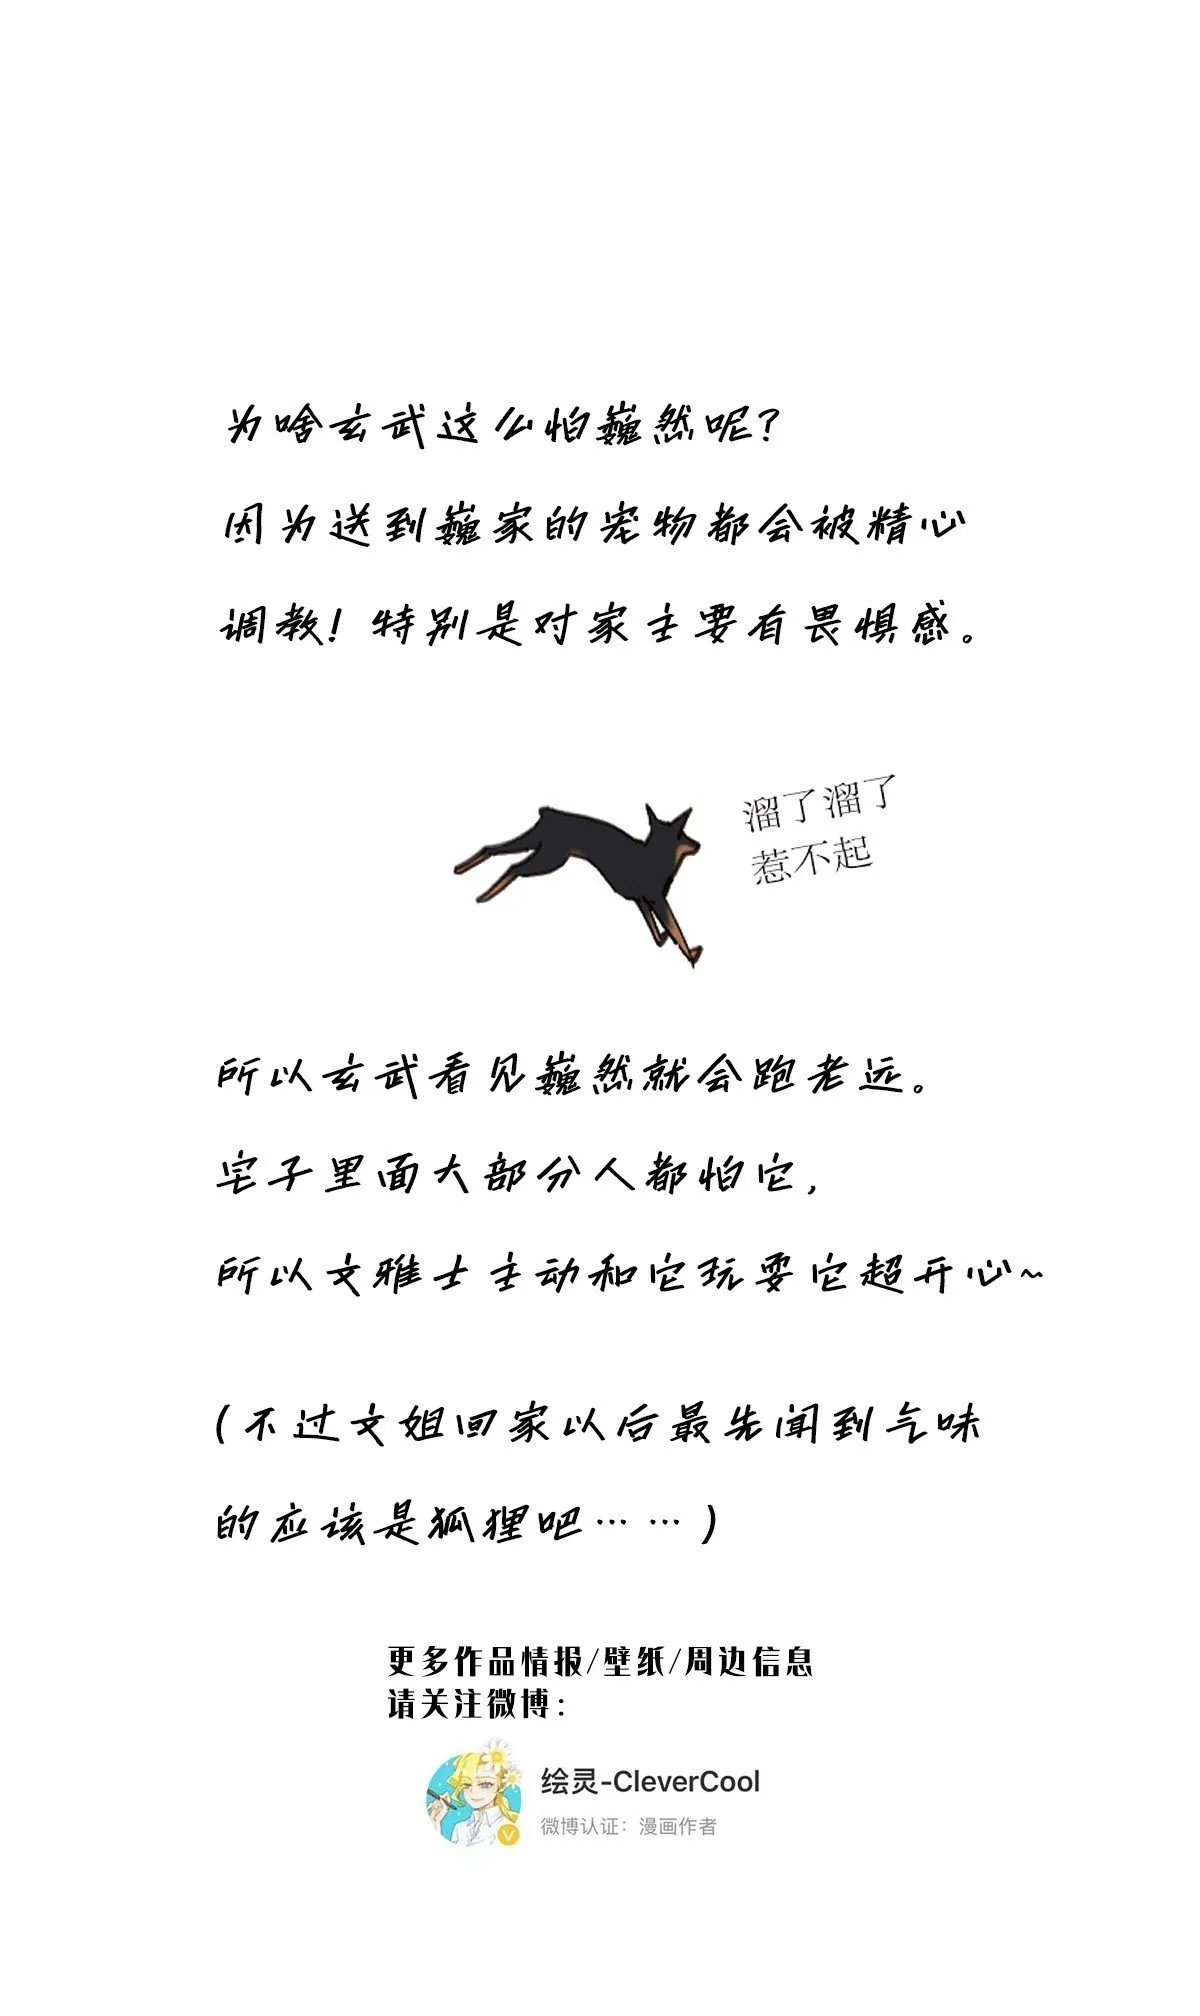 为啥玄武这么怕巍然呢？
因为送到巍家的宠物都会被精心
调教！特别是对家主要有畏惧感。
溜了溜了
惹不起
所以玄武看见巍然就会跑老远。
宅子里面大部分人都怕它，
所以文雅士主动和它玩耍它超开心~
(不过文姐回家以后最先闻到气味
的应该是狐狸吧……)
更多作品情报/壁纸/周边信息
请关注微博：
绘灵-CleverCool
微博认证：漫画作者